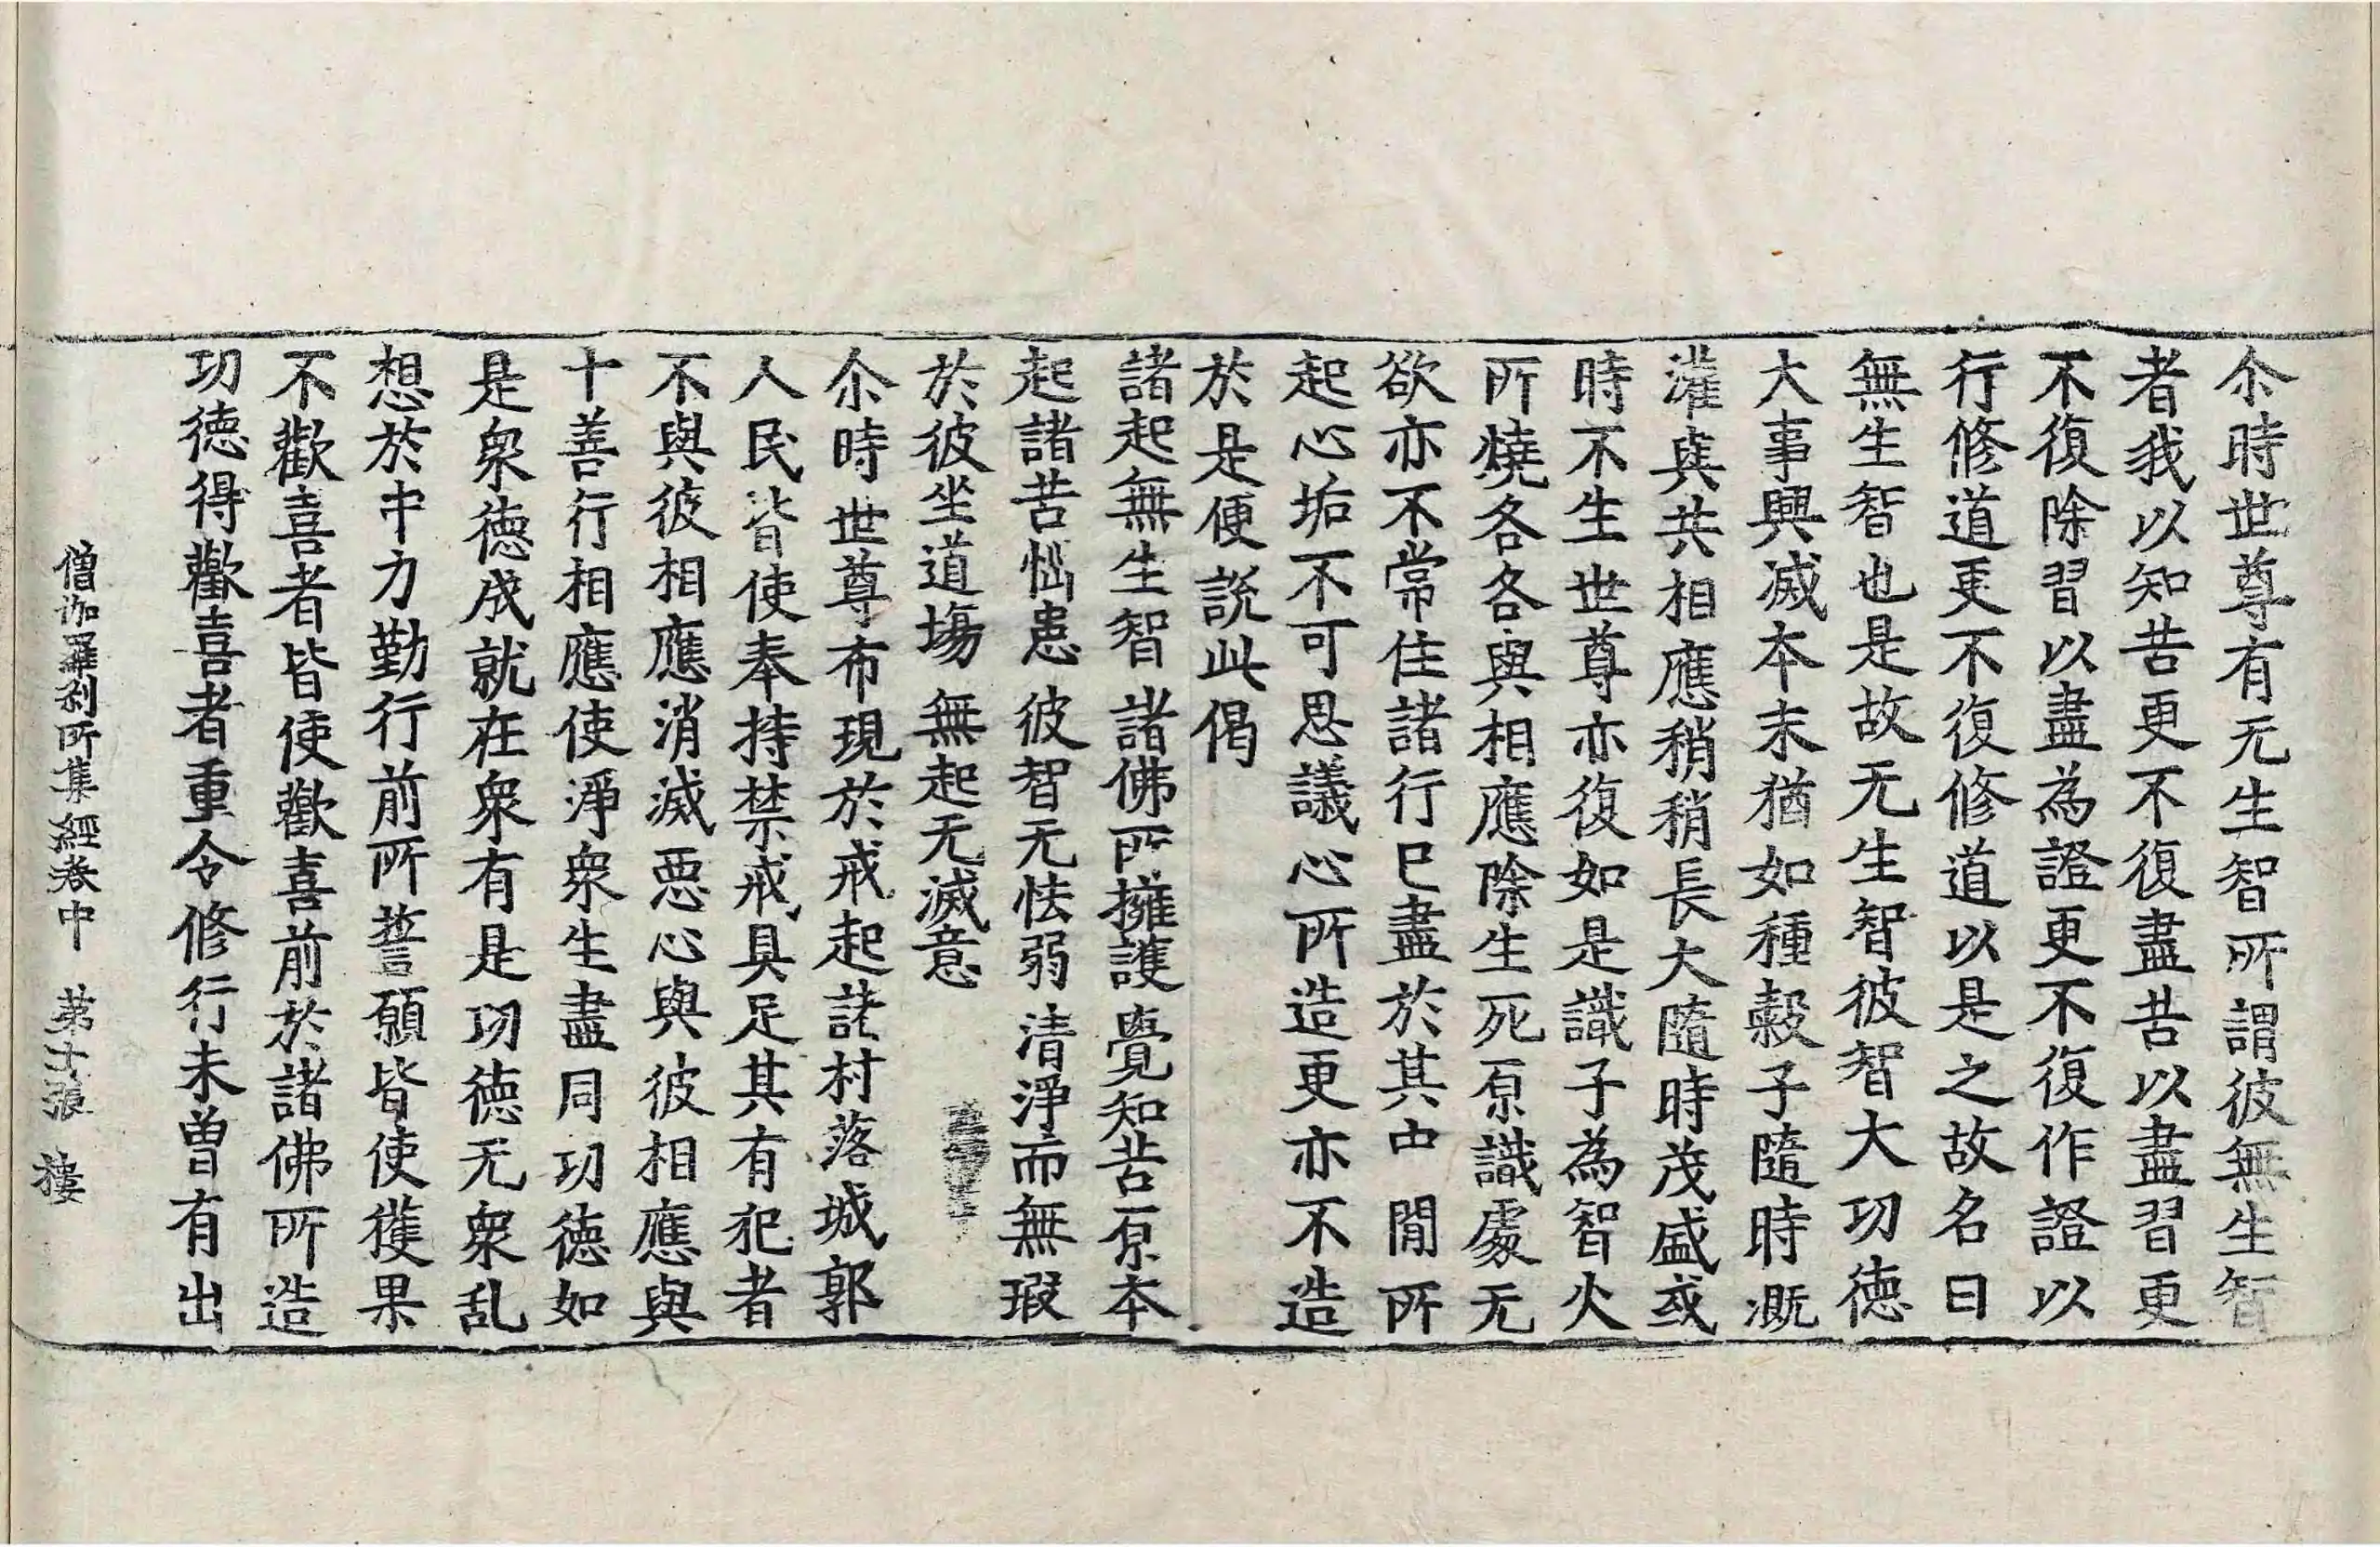 尒時世尊有无生智所謂彼無生智
者我以知苦更不復盡苦以盡習更
不復除習以盡為證更不復作證以
行修道更不復修道以是之故名曰
無生智也是故无生智彼智大功德
大事興滅本末猶如種糓子隨時溉
灌與共相應稍稍長大隨時茂盛或
時不生世尊亦復如是識子為智火
所燒各各與相應除生死原識處无
欲亦不常住諸行已盡於其中間所
起心垢不可思議心所造更亦不造
於是便說此偈
諸起無生智 諸佛所擁護 覺知苦原本
起諸苦惱患 彼智无怯弱 清淨而無瑕
於彼坐道場 無起无滅意
尒時世尊布現於戒起諸村落城郭
人民皆使奉持禁戒具足其有犯者
不與彼相應消滅惡心與彼相應與
十善行相應使淨衆生盡同功德如
是衆德成就在衆有是功德无衆乱
想於中力勤行前所誓願皆使獲果
不歡喜者皆使歡喜前於諸佛所造
功德得歡喜者重令修行未曾有出
僧伽羅刹所集經卷中 苐十張 樓